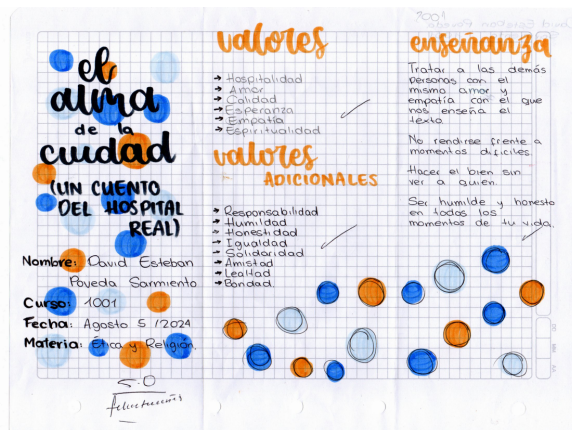 el
alma
de la
cuidad
(UN CUENTO
DEL HOSPITAL
REAL)
Nombre: David Esteban
Poveda Sarmiento
Curso: 1001
Fecha: Agosto 5 /2024
Materia: Ética y Religión.
5.0
valores
→ Hospitalidad
→ Amor
→ Calidad
→ Esperanza
→ Empatía
→ Espiritualidad
valores
ADICIONALES
→ Responsabilidad
→ Humildad
→ Honestidad
→ Igualdad
→ Solidaridad
→ Amistad
→ Lealtad
→ Bondad.
enseñanza
Tratar a las demás
personas con el
mismo amor y
empatía con el que
nos enseña el
texto
No rendirse frente a
momentos dificiles.
Hacer el bien sin
ver a quien.
Ser humilde y honesto
en todos los
momentos de tu vida.